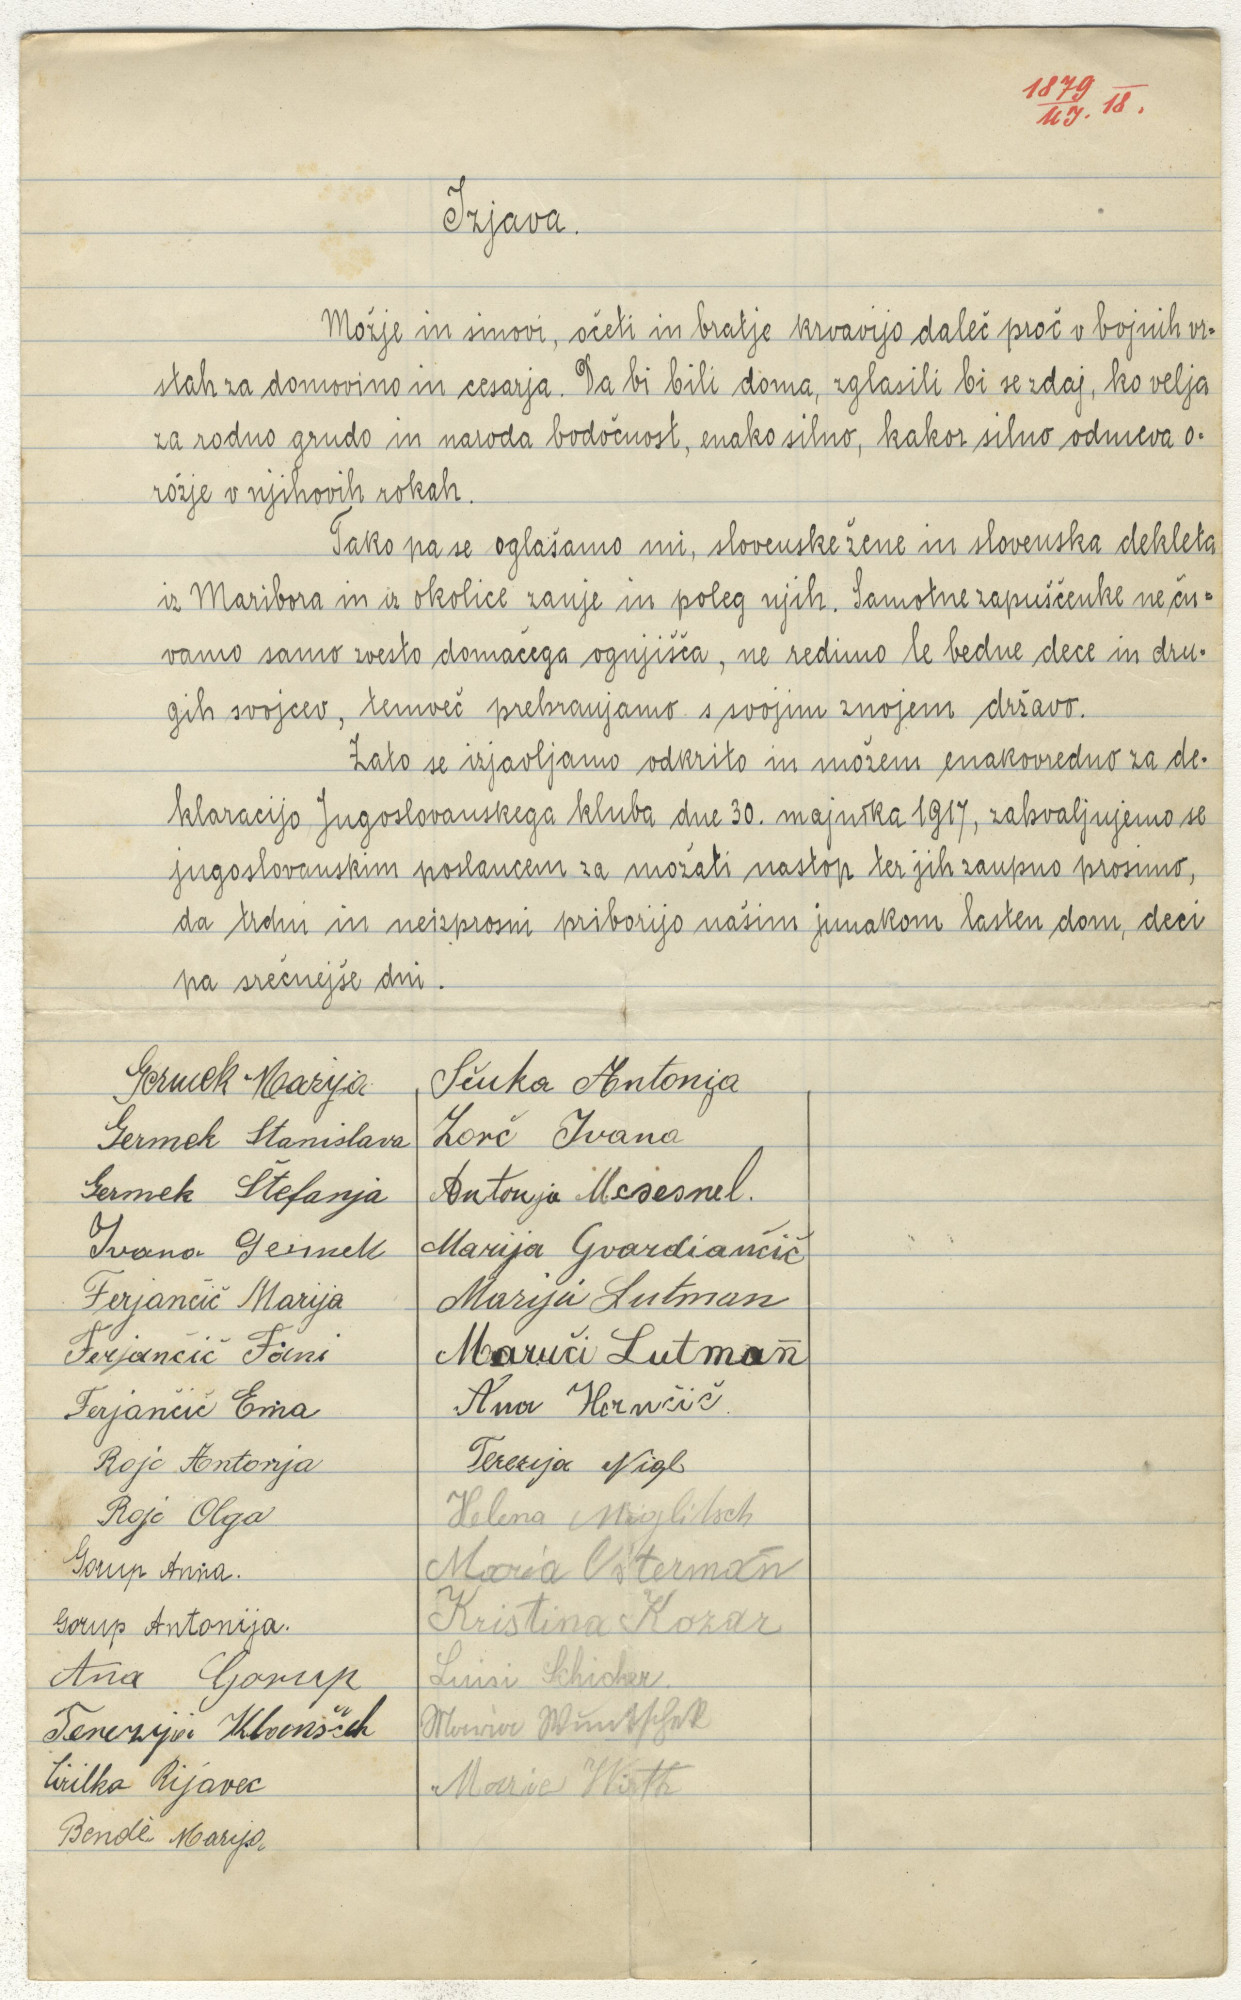 1879
MJ. 18.
Izjava.
Možje in sinovi, očeti in bratje krvavijo daleč proč v bojnih vr=
stah za domovino in cesarja. Da bi bili doma, zglasili bi se zdaj, ko velja
za rodno grudo in naroda bodočnost, enako silno, kakor silno odmeva o-
rožje v njihovih rokah.
Tako pa se oglašamo mi, slovenske žene in slovenska dekleta
iz Maribora in iz okolice zanje in poleg njih. Samotne zapuščenke ne ču=
vamo samo zvesto domačega ognjišča, ne redimo le bedne dece in dru-
gih svojcev, temveč prehranjamo s svojim znojem državo.
Zato se izjavljamo odkrito in možem enakovredno za de-
klaracijo Jugoslovanskega kluba dne 30. majnika 1917, zahvaljujemo se
jugoslovanskim poslancem za možati nastop ter jih zaupno prosimo,
da trdni in neizprosni priborijo našim junakom lasten dom, deci
pa srečnejše dni.
Germek Marija
Germek Stanislava
Germek Štefanja
Ivana Germek
Ferjančič Marija
Ferjančič Fani
Ferjančič Ema
Rojc Antonja
Rojc Olga
Gorup Anna.
Gorup Antonija.
Ana Gorup
Terezija
Cirilka Rijavec
Bendè Marija
Sčuka Antonija
Zorč Ivana
Antonja Mesesnel.
Marija Gvardiančič
Marija Lutman
Maruči Lutman
Ana Hernčič.
Terezija Nigl
Helena Miglitsch
Maria Osterman
Kristina Kozar
Luisi
Maria
Marie Hirth